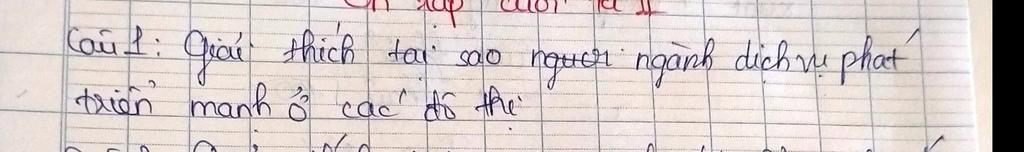 Ôn tập cuối kì II
Câu 1: Giải thích tại sao người ngành dịch vụ phát
triển mạnh ở các đô thị